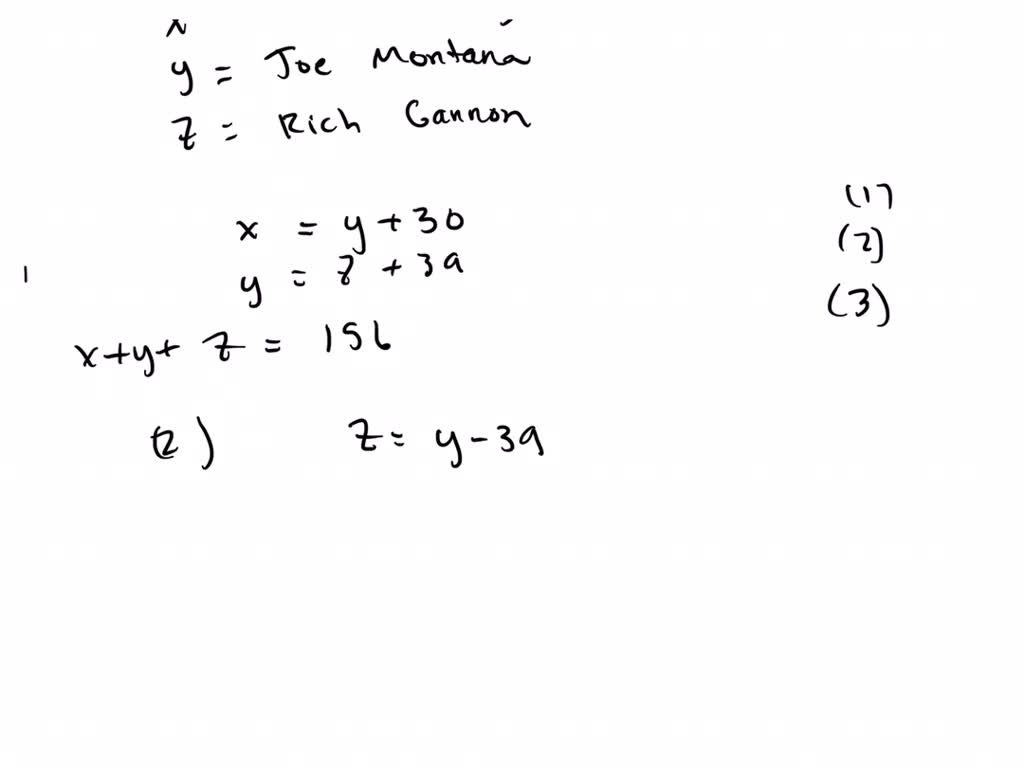 y = Joe Montana
z = Rich Gannon
x = y + 30 (1)
y = z + 39 (2)
x + y + z = 156 (3)
(2) z = y - 39